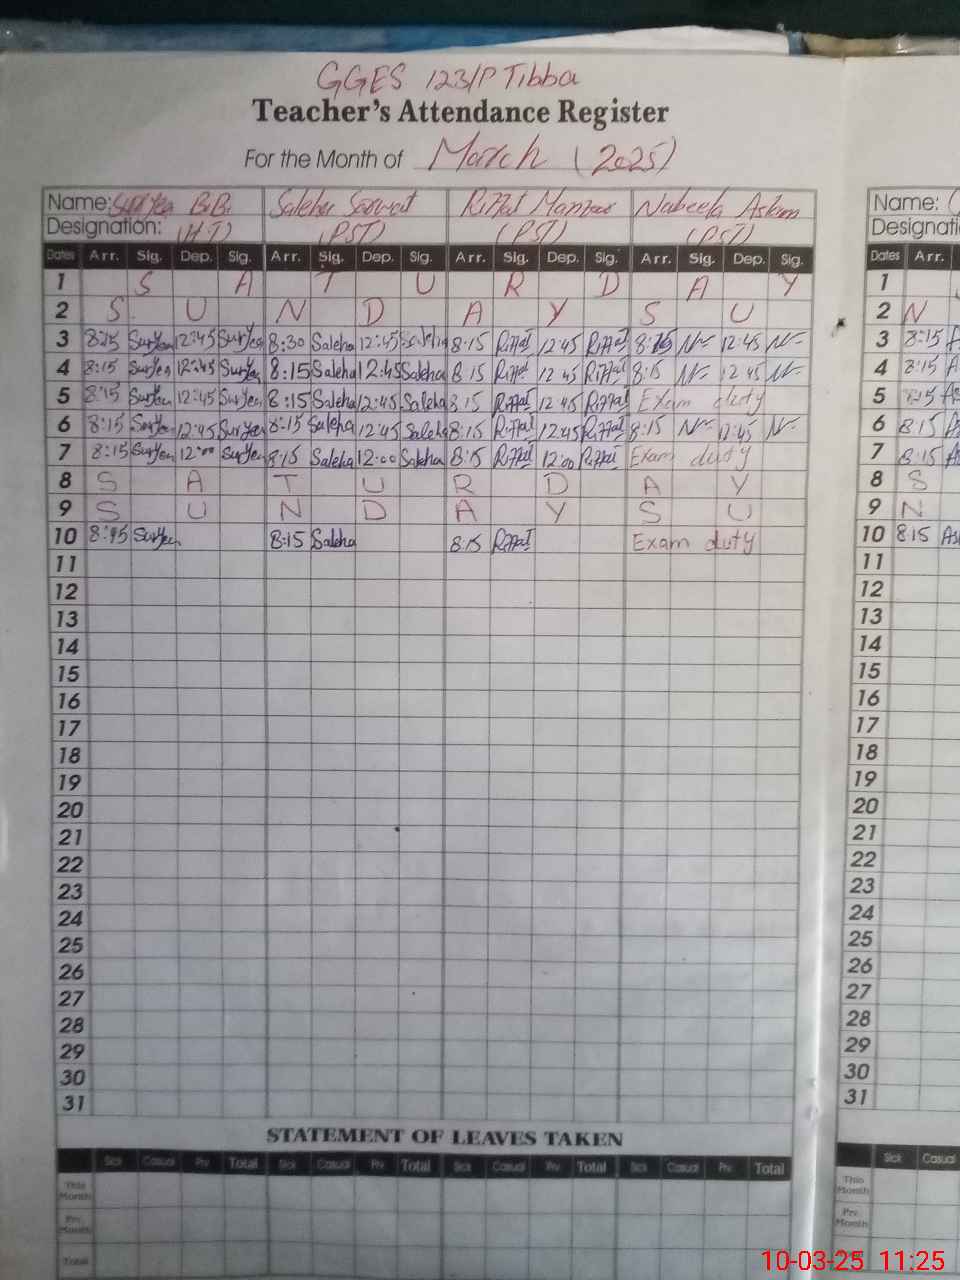 GGES 123/P Tibba
Teacher's Attendance Register
For the Month of March (2025)
Name: Suryea BiBi Saleha Sarwat Riffat Manzoor Nabeela Aslam Name:
Designation: (HT) (PST) (PST) (PST)
Dates Arr. Sig. Dep. Sig. Arr. Sig. Dep. Sig. Arr. Sig. Dep. Sig. Arr. Sig. Dep. Sig. Dates Arr.
1 S A T U R D A Y 1
2 S U N D A Y S U 2 N
3 8:15 Suryea 12:45 Suryea 8:30 Saleha 12:45 Saleha 8:15 Riffat 12:45 Riffat 12:45 3 8:15
4 8:15 Suryea 12:45 Suryea 8:15 Saleha 12:45 Saleha 8:15 Riffat 12:45 Riffat 8:15 12:45 4 8:15
5 8:15 Suryea 12:45 Suryea 8:15 Saleha 12:45 Saleha 8:15 Riffat 12:45 Riffat Exam duty 5 8:15
6 8:15 Suryea 12:45 Suryea 8:15 Saleha 12:45 Saleha 8:15 Riffat 12:45 Riffat 8:15 12:45 6 8:15
7 8:15 Suryea 12:00 Suryea 8:15 Saleha 12:00 Saleha 8:15 Riffat 12:00 Riffat Exam duty 7 8:15
8 S A T U R D A Y 8 S
9 S U N D A Y S U 9 N
10 8:15 Suryea 8:15 Saleha 8:15 Riffat Exam duty 10 8:15
11 11
12 12
13 13
14 14
15 15
16 16
17 17
18 18
19 19
20 20
21 21
22 22
23 23
24 24
25 25
26 26
27 27
28 28
29 29
30 30
31 31
STATEMENT OF LEAVES TAKEN
Sick Casual Prv. Total Sick Casual Prv. Total Sick Casual Prv. Total Sick Casual Prv. Total Sick Casual
This Month This Month
Prv. Month Prv. Month
Total
10-03-25 11:25